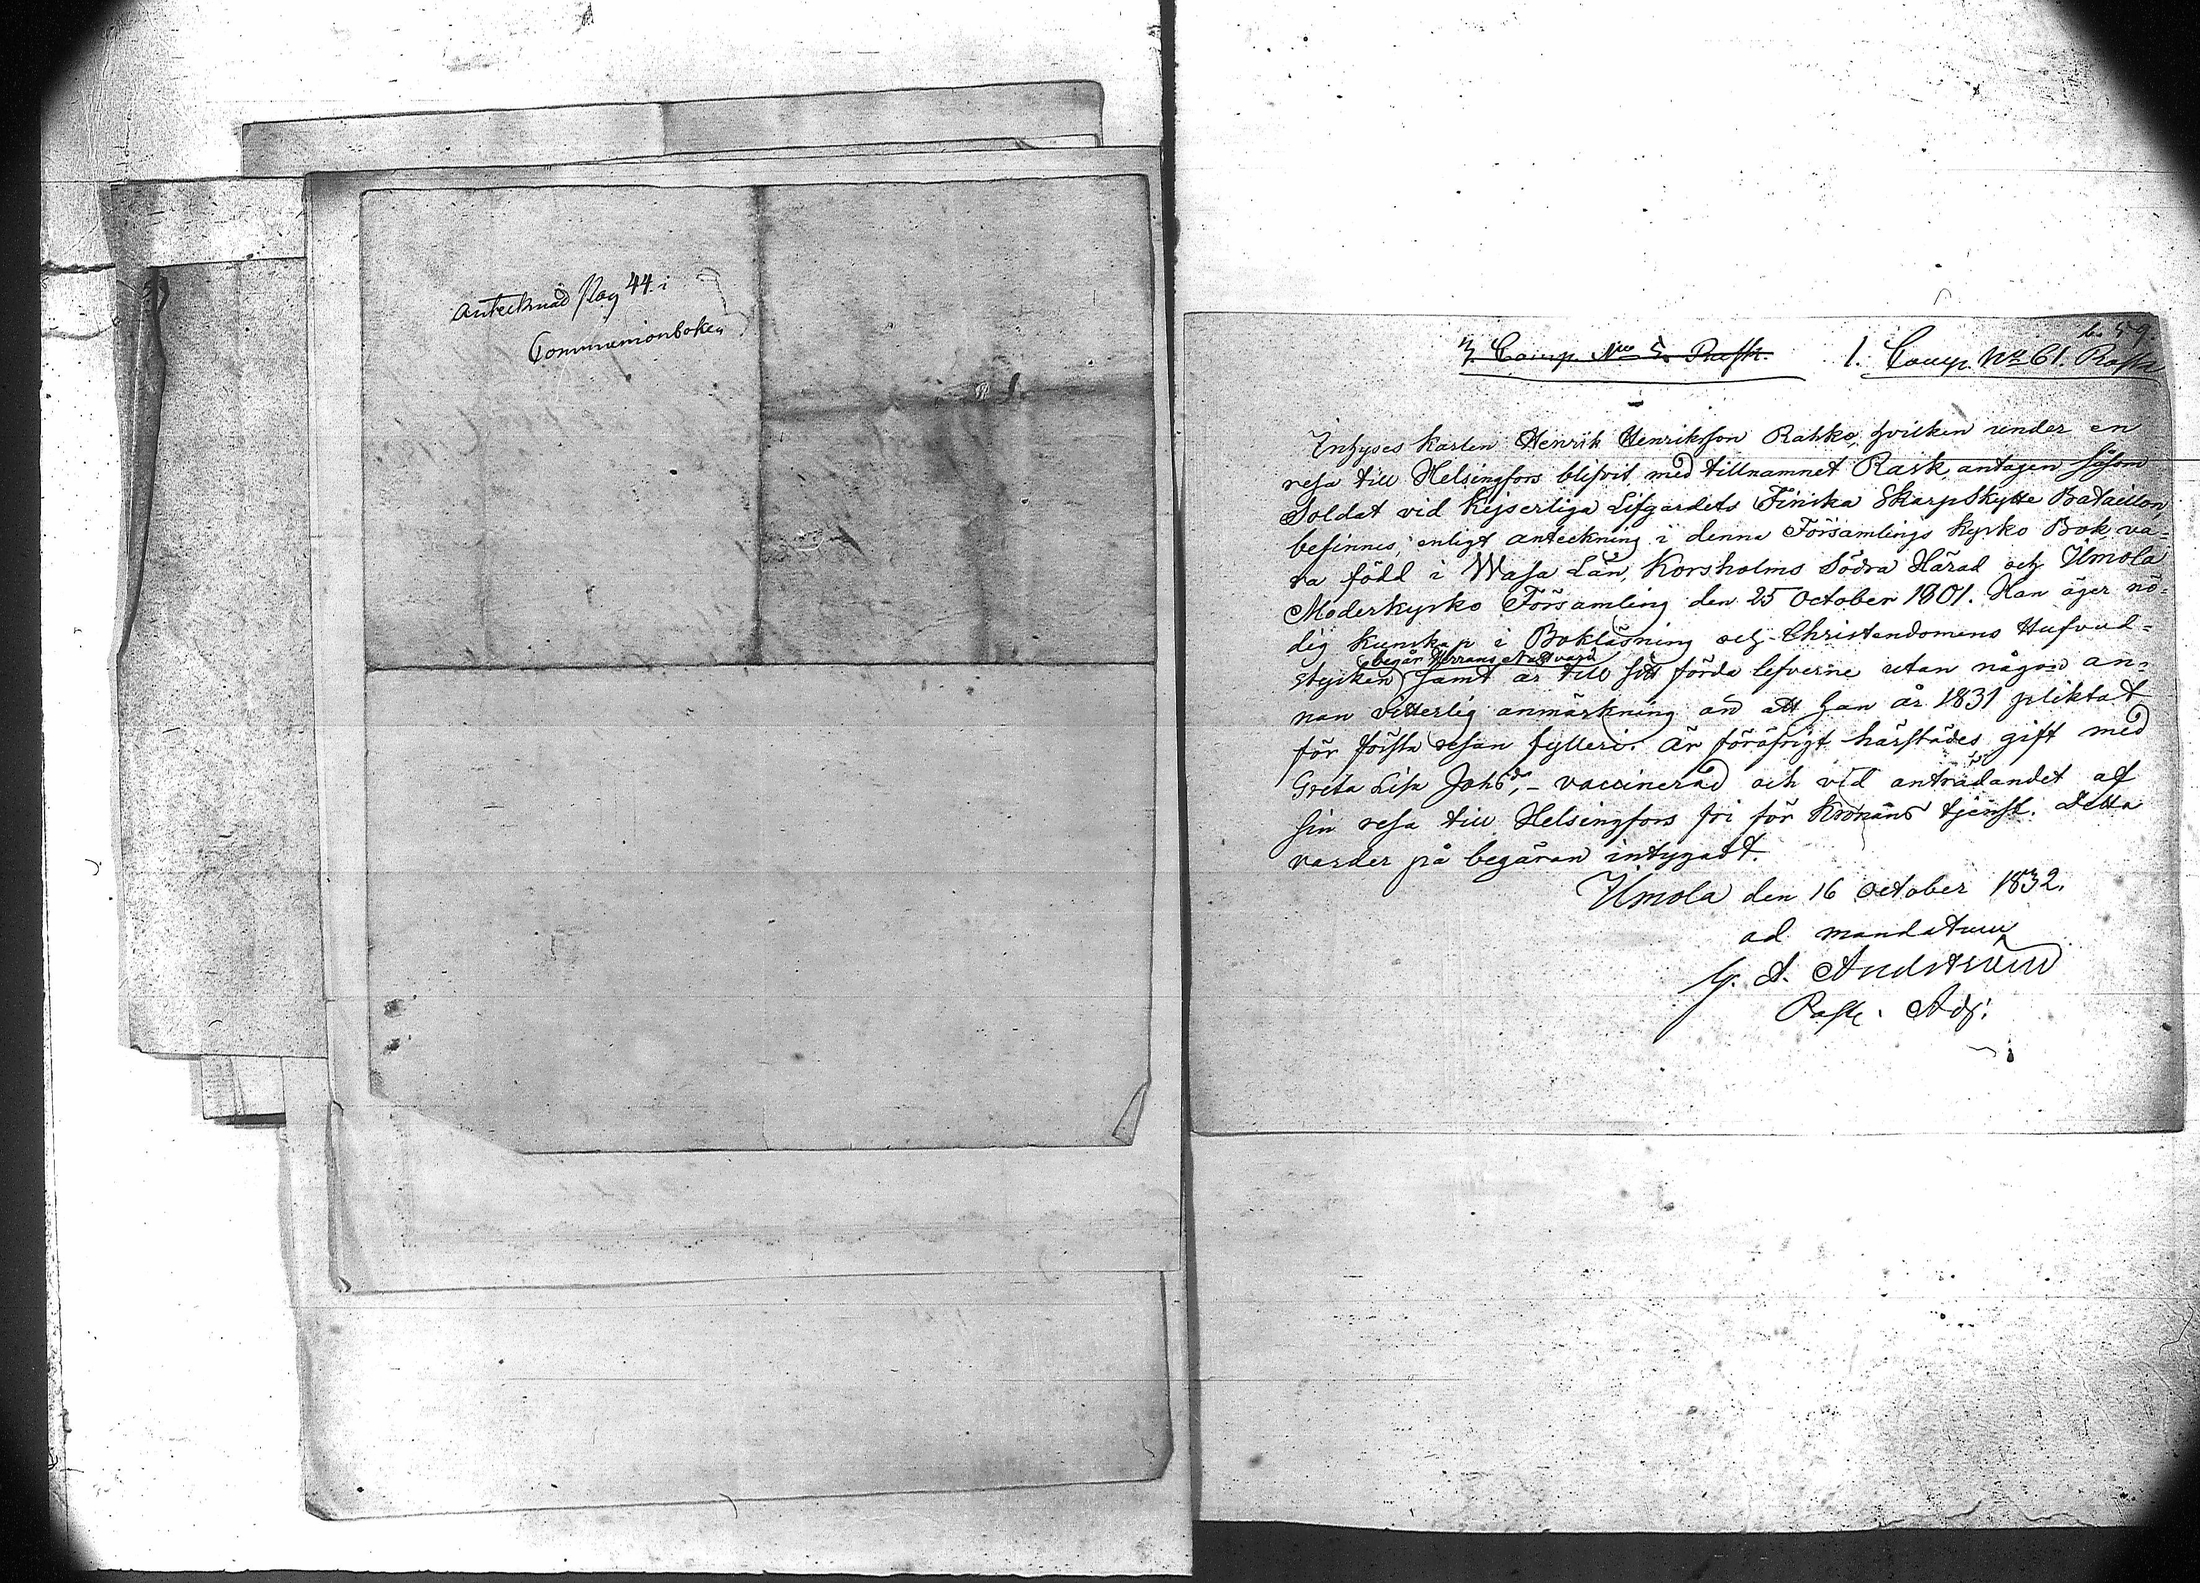 Antecknad Pag 44 i
Communionboken
b. 59.
3. Comp. No 5. Rask. 1. Comp. No 61. Rask
Inhyses Karlen Henrik Henriksson Rahko, hvilken under en
resa till Helsingfors blifvit med tillnamnet Rask, antagen såsom
Soldat vid Kejserliga Lifgardets Finska Skarpskytte Bataillon,
befinnes, enligt anteckning i denna Församlings Kyrko Bok, va=
ra född i Wasa Län, Korsholms Södra Härad och Ilmola
Moderkyrko Församling den 25 October 1801. Han äger nö=
dig kunskap i Bokläsning och Christendomens Hufvud=
begår Herrans Nattvard
stycken samt är till sitt förda lefverne utan någon an=
nan vitterlig anmärkning än att han år 1831 pliktat
för första resan fylleri. Är föröfrigt härstädes gift med
Greta Lisa Johsdr, - vaccinerad och vid anträdandet af
sin resa till Helsingfors fri för Kronans tjenst. Detta
varder på begäran intygadt.
Ilmola den 16 October 1832.
ad mandatum
Past. Adj: